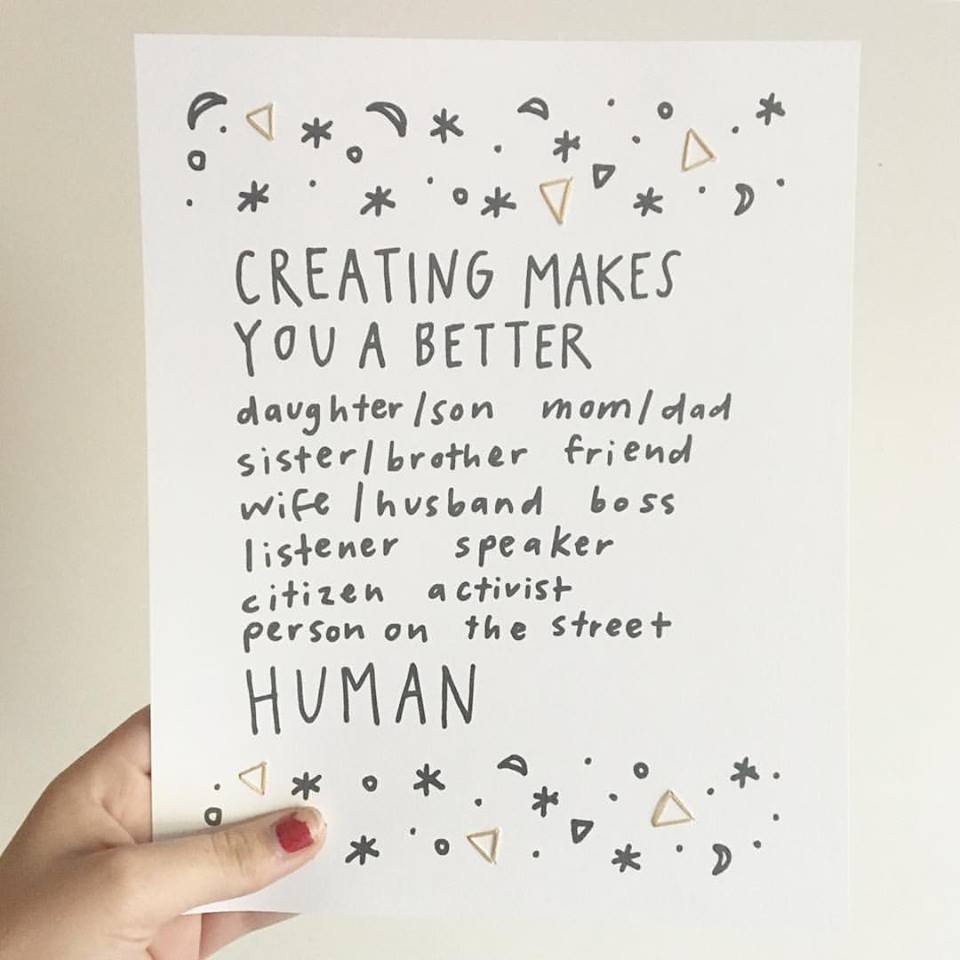 CREATING MAKES
YOU A BETTER
daughter/son mom/dad
sister/brother friend
wife/husband boss
listener speaker
citizen activist
person on the street
HUMAN